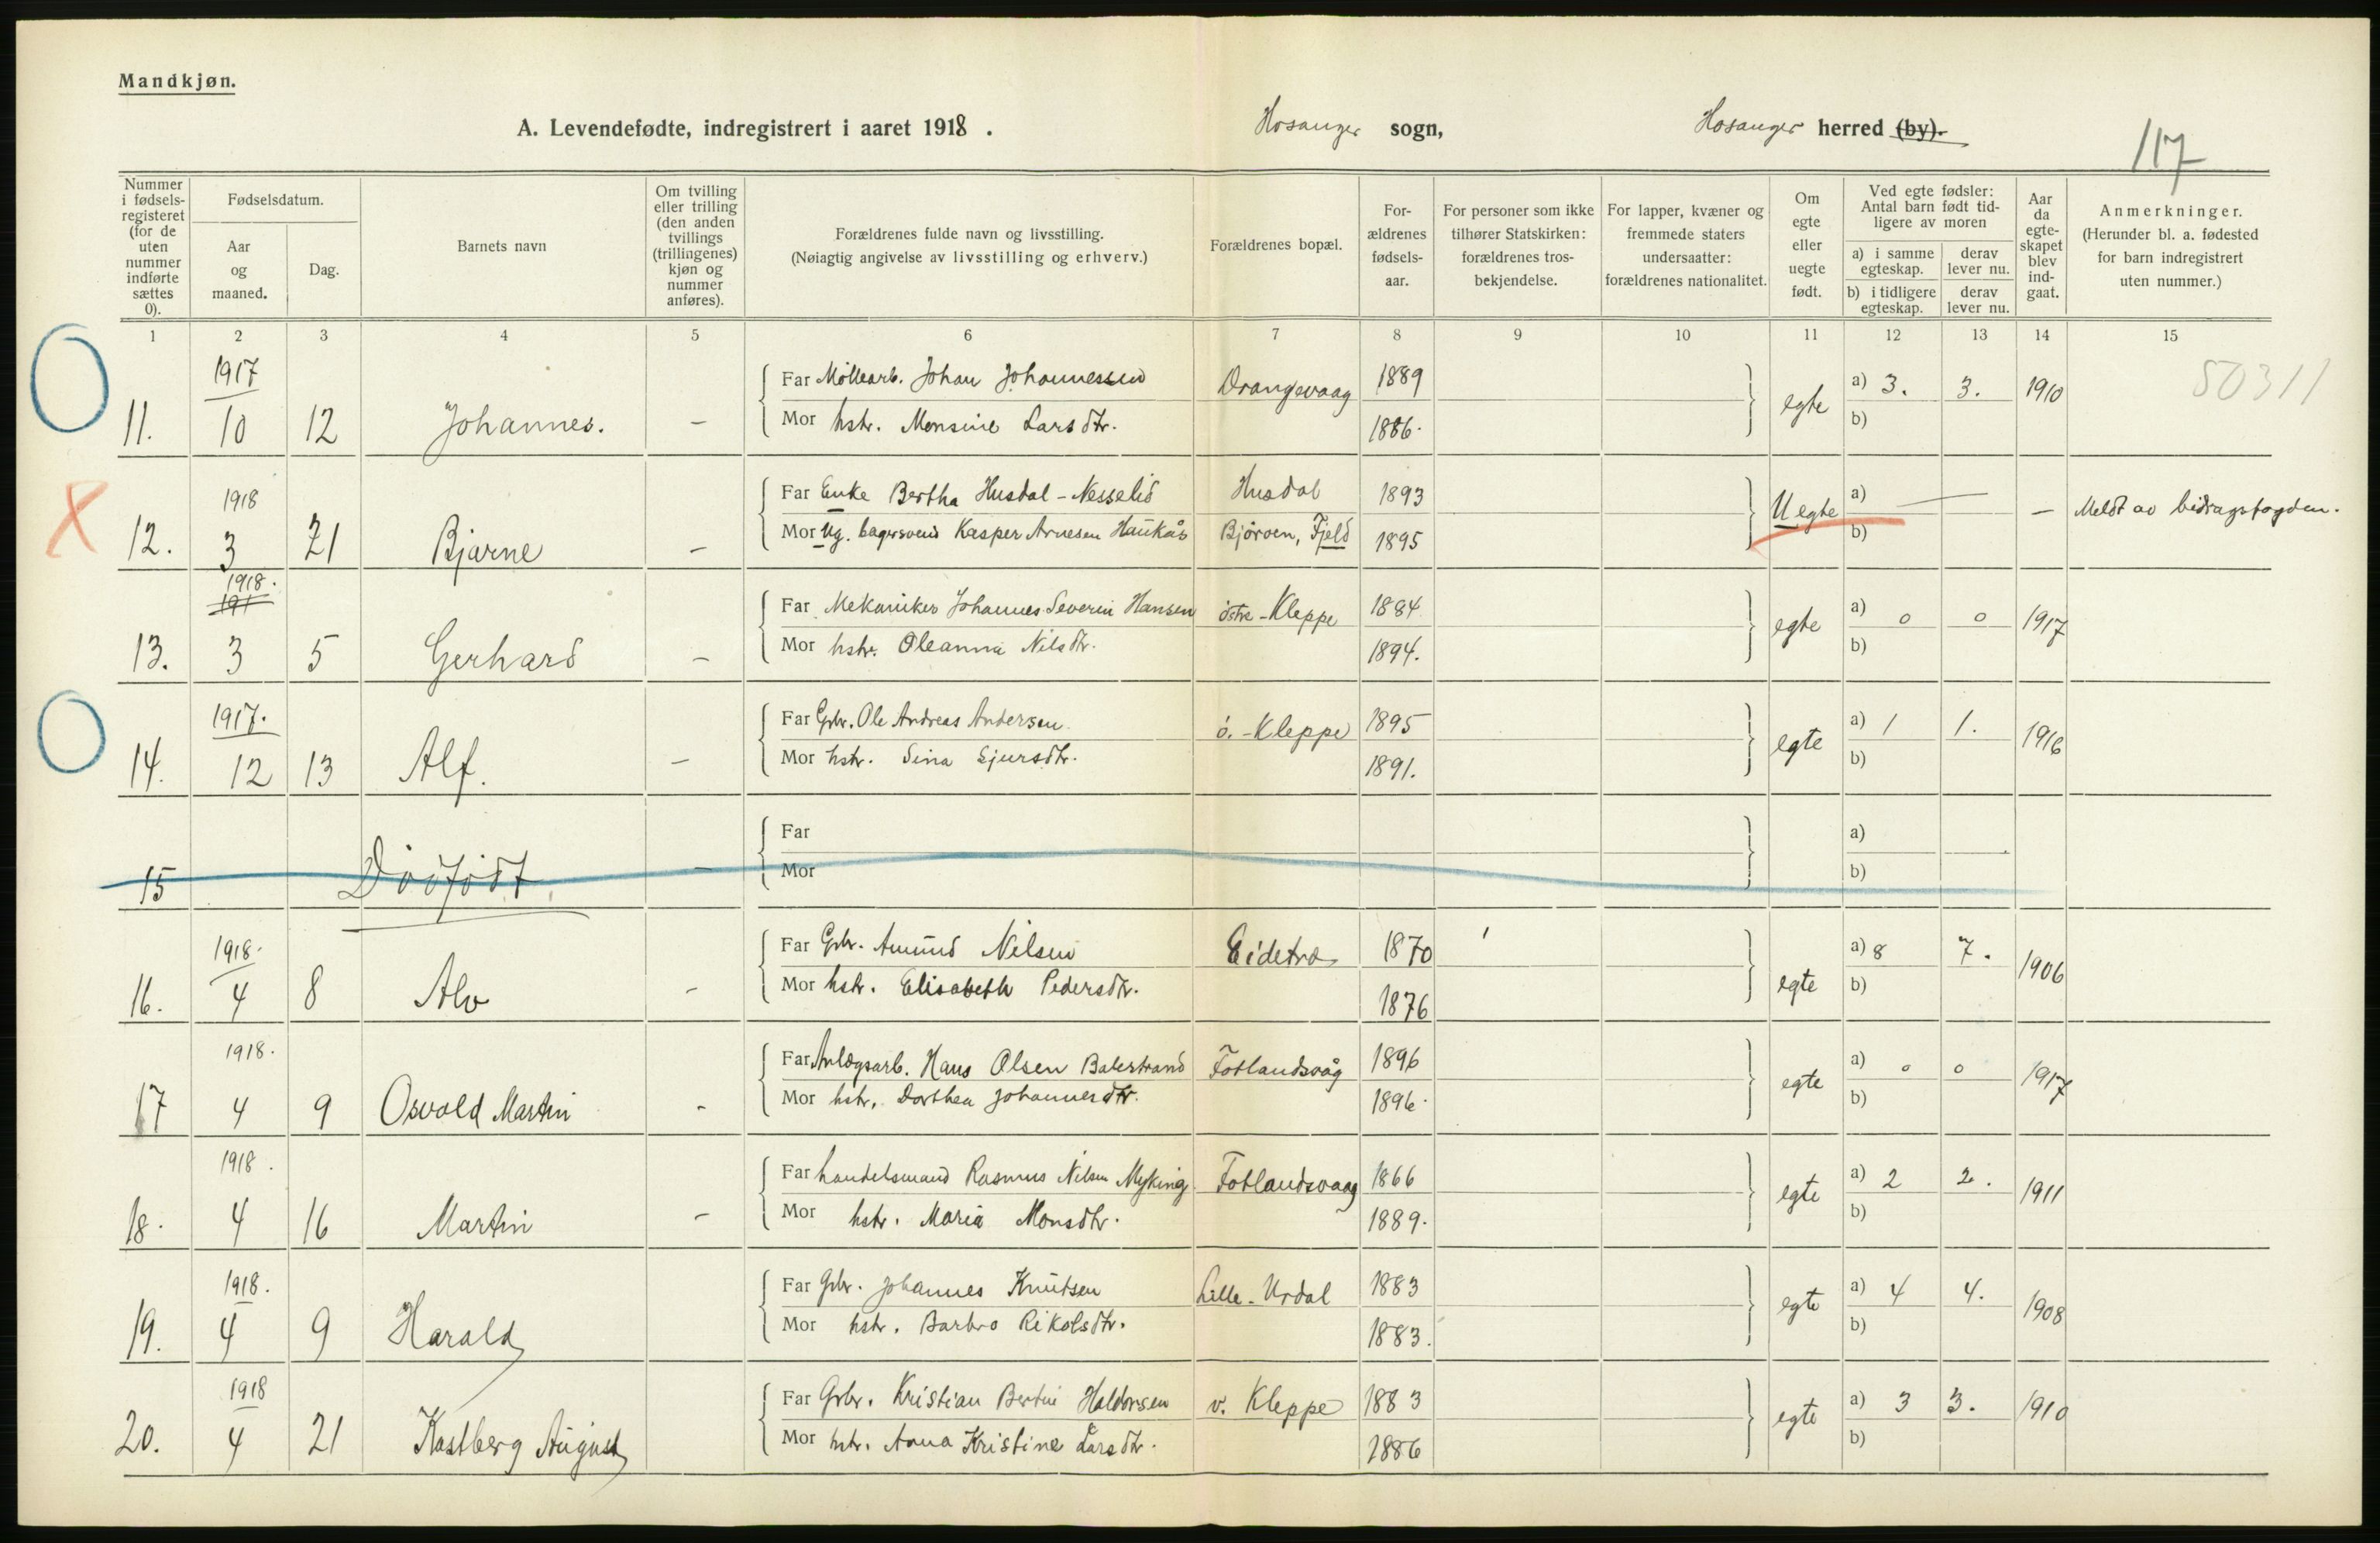 Mandkjøn.
A. Levendefødte, indregistrert i aaret 1918.
Hosanger sogn,
Hosanger herred (by).
117
Nummer i fødsels-registeret (for de uten nummer indførte sættes 0).
Fødselsdatum.
Aar og maaned.
Dag.
Barnets navn
Om tvilling eller trilling (den anden tvillings (trillingenes) kjøn og nummer anføres).
Forældrenes fulde navn og livsstilling.
(Nøiagtig angivelse av livsstilling og erhverv.)
Forældrenes bopæl.
For-ældrenes fødsels-aar.
For personer som ikke tilhører Statskirken: forældrenes tros-bekjendelse.
For lapper, kvæner og fremmede staters undersaatter: forældrenes nationalitet.
Om egte eller uegte født.
Ved egte fødsler: Antal barn født tid-ligere av moren
a) i samme egteskap.
derav lever nu.
b) i tidligere egteskap.
derav lever nu.
Aar da egte-skapet blev ind-gaat.
Anmerkninger.
(Herunder bl. a. fødested for barn indregistrert uten nummer.)
1 2 3 4 5 6 7 8 9 10 11 12 13 14 15
11. 1917 10 12 Johannes. –
Far Møllearb. Johan Johannessen Drangsvaag 1889
Mor hstr. Monsine Larsdtr. 1886.
egte a) 3. 3. 1910 50311
b)
12. 1918 3 21 Bjarne –
Far Enke Bertha Husdal - Nesselid Husdal 1893
Mor Ug. bagersvend Kasper Arnesen Haukås Björoen, Fjeld 1895
Uegte a) — — Meldt av bidragsfogden.
b)
13. 1918. 191 3 5 Gerhard –
Far Mekaniker Johannes Severin Hansen östre - Kleppe 1884
Mor hstr. Oleanna Nilsdtr. 1894.
egte a) 0 0 1917
b)
14. 1917. 12 13 Alf. –
Far Gbr. Ole Andreas Andersen ö. - Kleppe 1895
Mor hstr. Sina Sjursdtr. 1891.
egte a) 1 1. 1916
b)
15 Dödfödt. –
Far
Mor
a)
b)
16. 1918. 4 8 Alv –
Far Gbr. Amund Nilsen Eidetræ 1870
Mor hstr. Elisabeth Pedersdtr. 1876
egte a) 8 7. 1906
b)
17 1918. 4 9 Osvald Martin -
Far Anlægsarb. Hans Olsen Balestrand Fotlandsvåg 1896
Mor hstr. Dorthea Johannesdtr. 1896.
egte a) 0 0 1917
b)
18. 1918. 4 16 Martin –
Far handelsmand Rasmus Nilsen Myking Fotlandsvaag 1866
Mor hstr. Maria Monsdtr. 1889.
egte a) 2 2. 1911
b)
19. 1918. 4 9 Harald
Far Gbr. Johannes Knutsen Lille - Urdal 1883
Mor hstr. Barbro Rikolsdtr. 1883.
egte a) 4 4. 1908
b)
20. 1918 4 21 Kastberg August
Far Gbr. Kristian Bertin Haldorsen v. Kleppe 1883
Mor hstr. Anna Kristine Larsdtr. 1886
egte a) 3 3. 1910
b)